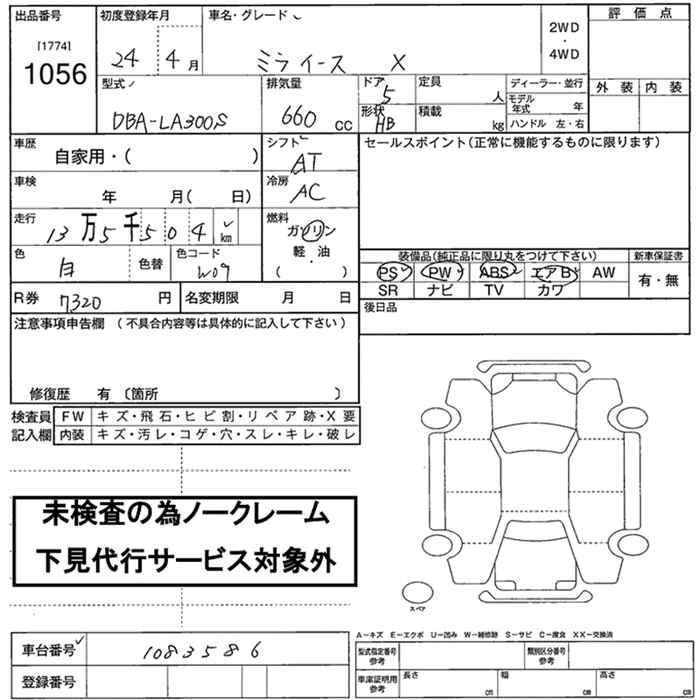 出品番号 初度登録年月 車名・グレード 評価点
[1774]
1056
24 4月 ミライース X 2WD・4WD
型式 排気量 ドア 5 定員 人 ディーラー・並行 外装 内装
DBA-LA300S 660 cc 形状 HB 積載 kg モデル年式 年
ハンドル 左・右
車歴 自家用・( ) シフト AT セールスポイント(正常に機能するものに限ります)
車検 年 月( 日) 冷房 AC
走行 13万5千504 km 燃料 ガソリン
軽・油
( )
色 白 色替 色コード W09 装備品(純品に限り丸をつけて下さい) 新車保証書
PS PW ABS エアB AW 有・無
SR ナビ TV カワ
R券 7320 円 名変期限 月 日 後日品
注意事項申告欄 (不具合内容等は具体的に記入して下さい)
修復歴 有 〔箇所 〕
検査員 FW キズ・飛石・ヒビ割・リペア跡・X要
記入欄 内装 キズ・汚レ・コゲ・穴・スレ・キレ・破レ
未検査の為ノークレーム
下見代行サービス対象外
スペア
A-キズ E-エクボ U-凹み W-補修跡 S-サビ C-腐食 XX-交換済
車台番号 1083586 型式指定番号参考 類別区分番号参考
登録番号 車庫証明用参考 長さ cm 幅 cm 高さ cm